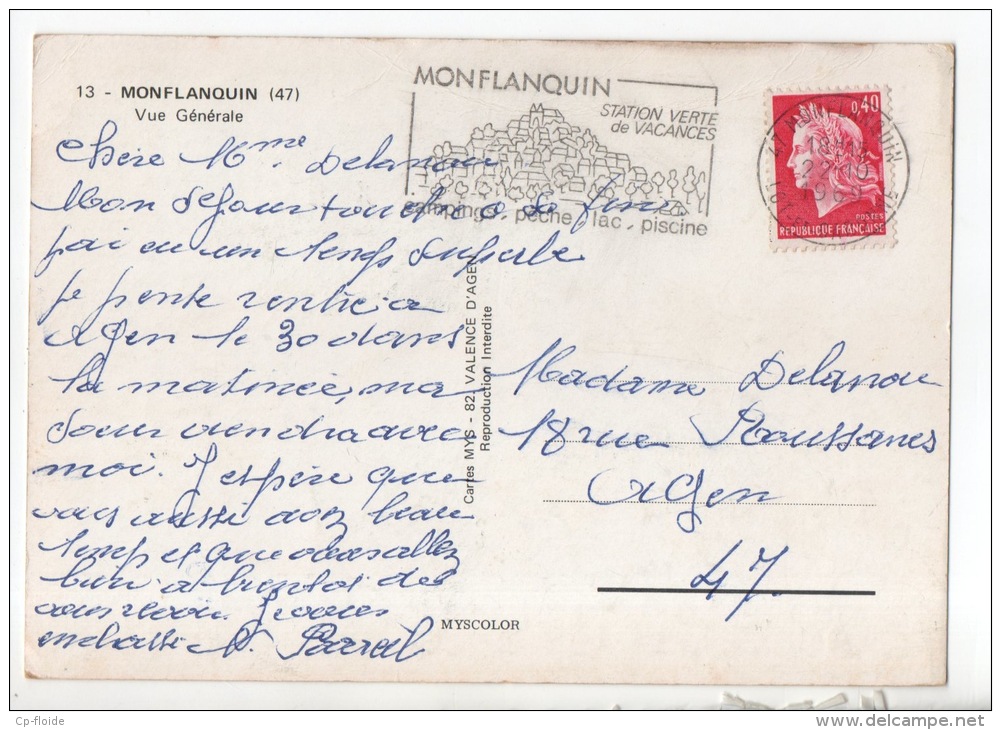 13 - MONFLANQUIN (47)
Vue Générale
MONFLANQUIN
STATION VERTE
de VACANCES
campings, pêche, lac, piscine
0,40
POSTES
REPUBLIQUE FRANÇAISE
Chère Mme Delanou
Mon séjour touche à sa fin
j'ai eu un temps superbe
je pense rentrer a
Agen le 30 dans
la matinée, ma
soeur viendra avec
moi. J'espère que
vous aussi avez beau
temps et que vous allez
bien a bientot de
vous revoir. Je vous
embrasse N.
Cartes MYS - 82, VALENCE D'AGEN
Reproduction Interdite
Madame Delanou
18 rue Roussanes
Agen
47.
MYSCOLOR
Cp-floide
www.delcampe.net